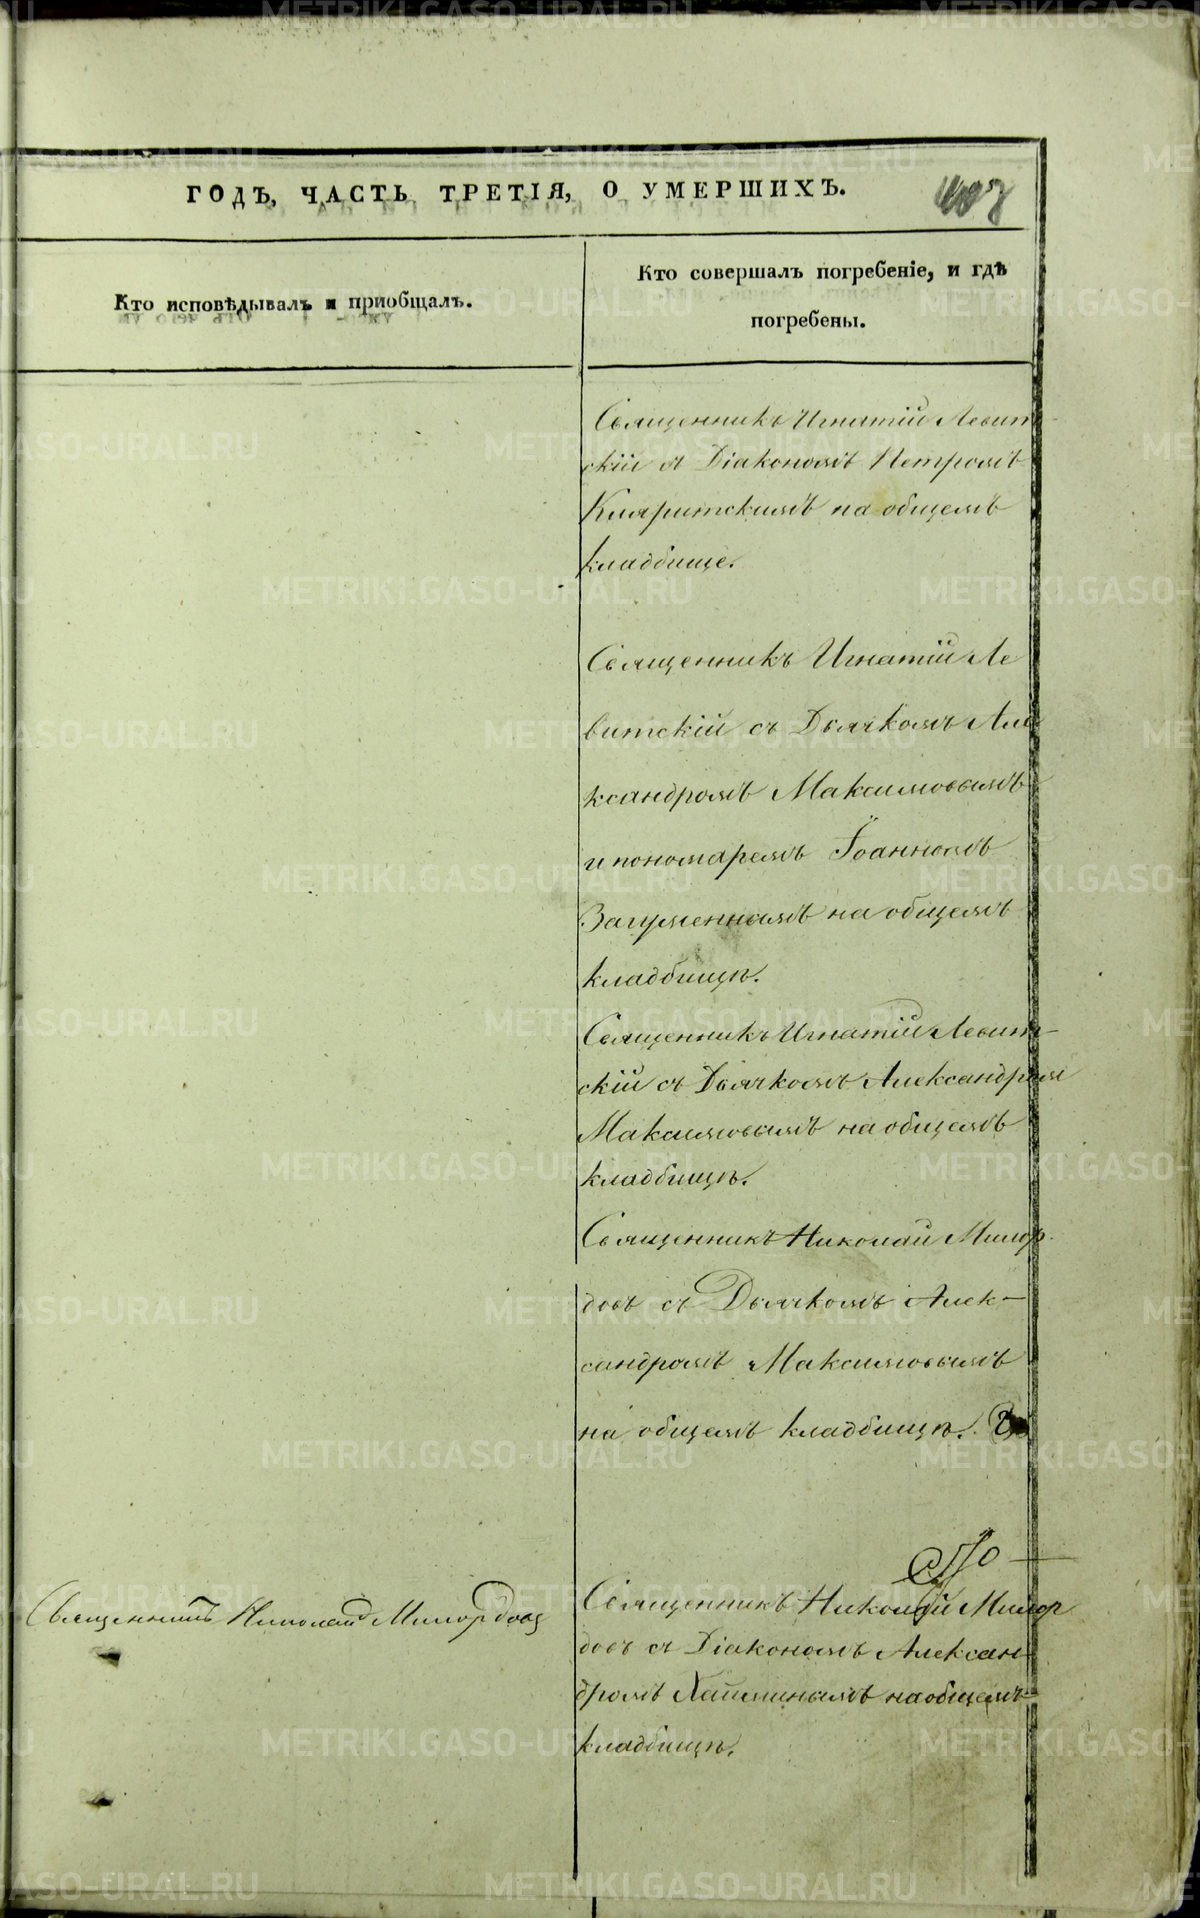 ГОДЪ, ЧАСТЬ ТРЕТІЯ, О УМЕРШИХЪ.
Кто исповѣдывалъ и пріобщалъ.
Кто совершалъ погребеніе, и гдѣ
погребены.
Священникъ Игнатій Левит
скій съ Діакономъ Петромъ
на общемъ
кладбище.
Священникъ Игнатій Ле
витскій съ Дьячкомъ Але
ксандромъ Максимовымъ
и пономаремъ Іоанномъ
Загуменнымъ на общемъ
кладбищѣ.
Священникъ Игнатій Левит-
скій съ Дьячкомъ Александромъ
Максимовымъ на общемъ
кладбищѣ.
Священникъ Николай Милор
довъ съ Дьячкомъ Алек-
сандромъ Максимовымъ
на общемъ кладбищѣ.
Священникъ Николай Милордовъ
Священникъ Николай Милор
довъ съ Діакономъ Алексан
дромъ на общемъ
кладбищѣ.
METRIKI.GASO-URAL.RU